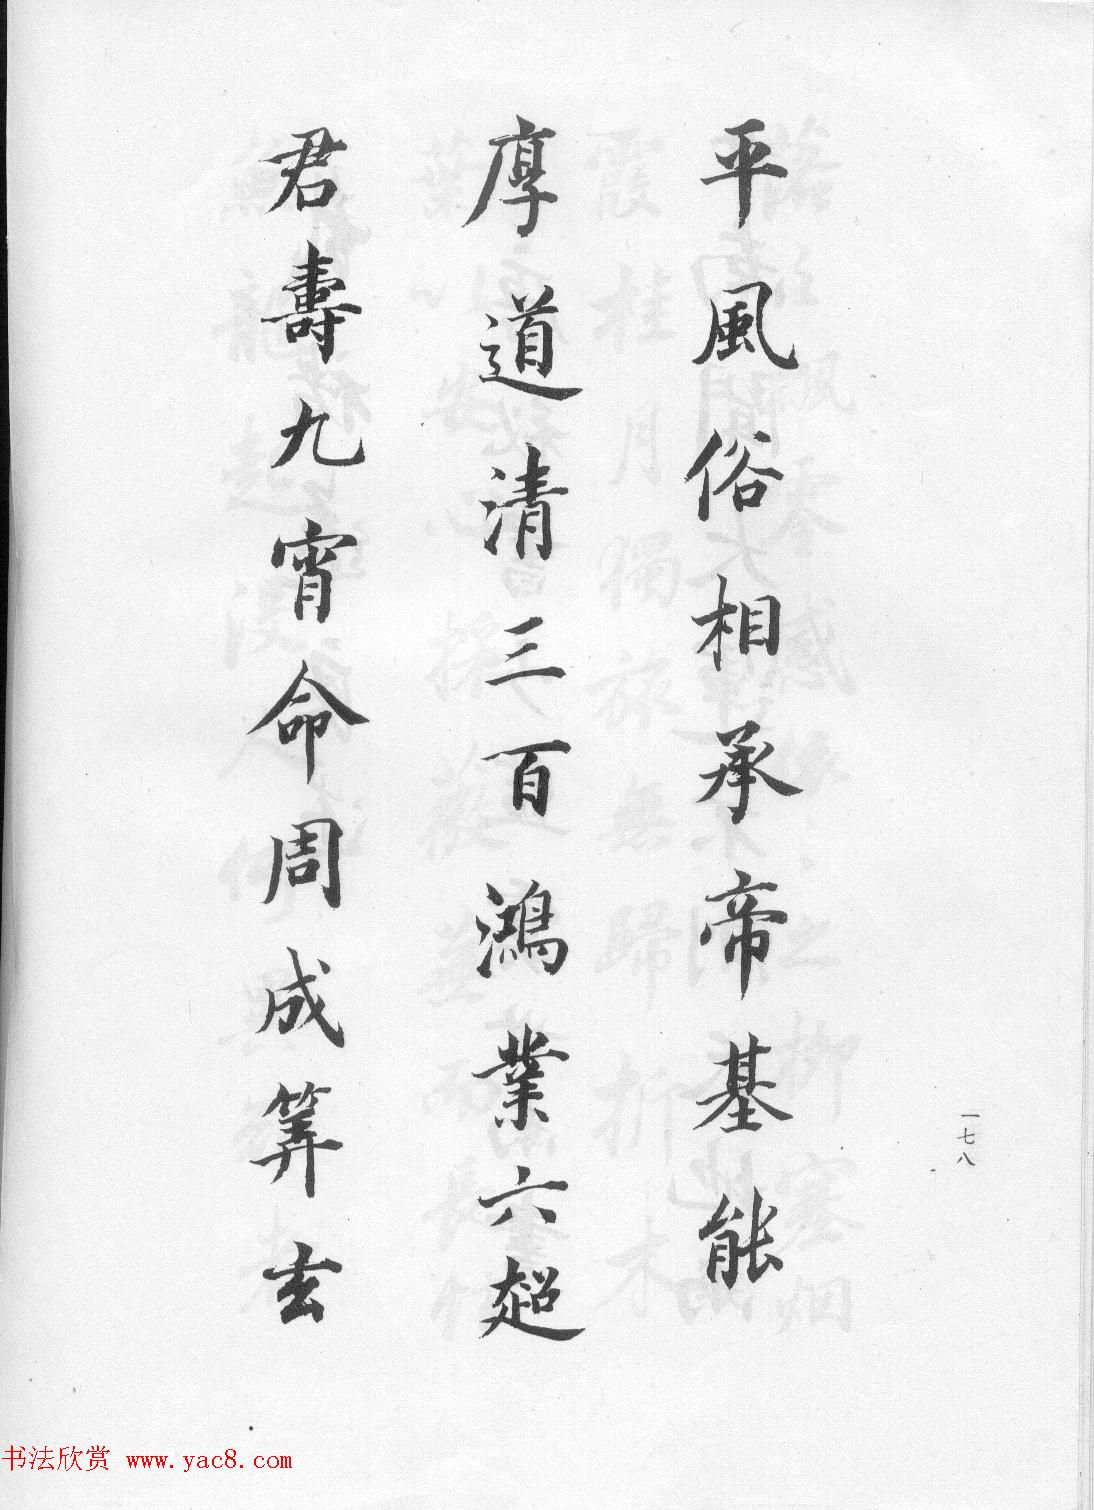 平風俗相承帝基能
厚道清三百鴻業六超
君壽九宵命周成筭玄
一七八
书法欣赏 www.yac8.com